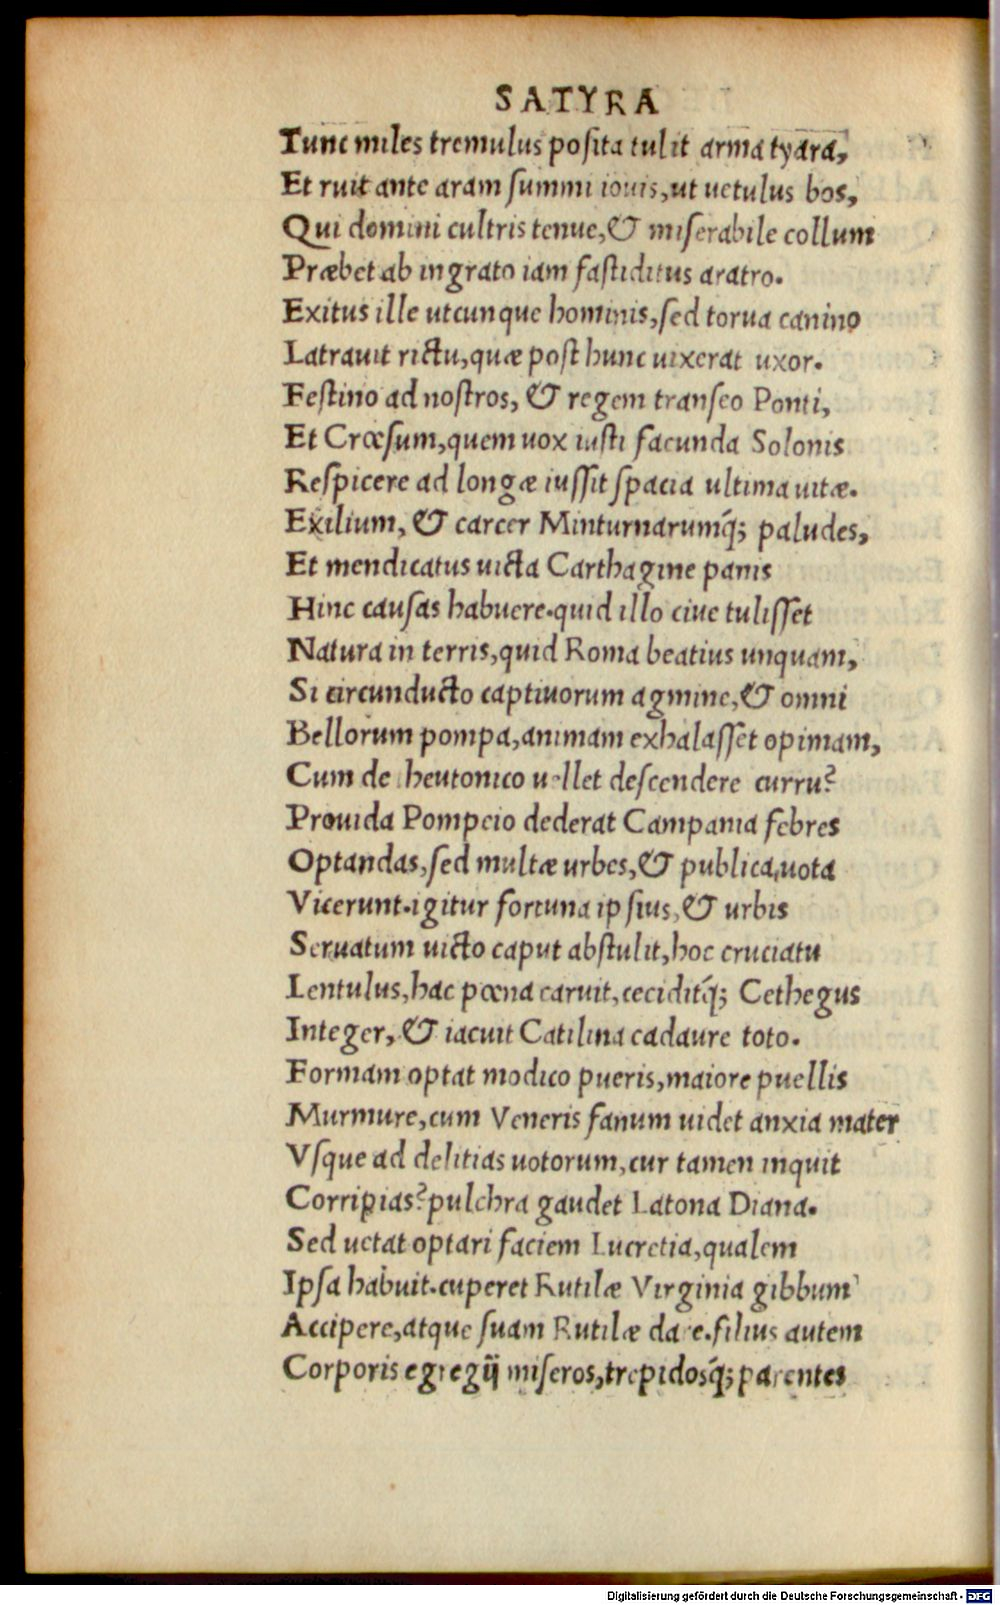 SATYRA
Tunc miles tremulus posita tulit arma tyara,
Et ruit ante aram summi iouis, ut uetulus bos,
Qui domini cultris tenue, & miserabile collum
Præbet ab ingrato iam fastiditus aratro.
Exitus ille utcunque hominis, sed torua canino
Latrauit rictu, quæ post hunc uixerat uxor.
Festino ad nostros, & regem transeo Ponti,
Et Crœsum, quem uox iusti facunda Solonis
Respicere ad longæ iussit spacia ultima uitæ.
Exilium, & carcer Minturnarumq́; paludes,
Et mendicatus uicta Carthagine panis
Hinc causas habuere. quid illo ciue tulisset
Natura in terris, quid Roma beatius unquam,
Si circunducto captiuorum agmine, & omni
Bellorum pompa, animam exhalasset opimam,
Cum de heutonico u llet descendere curru?
Prouida Pompeio dederat Campania febres
Optandas, sed multæ urbes, & publica uota
Vicerunt. igitur fortuna ipsius, & urbis
Seruatum uicto caput abstulit, hoc cruciatu
Lentulus, hac pœna caruit, ceciditq́; Cethegus
Integer, & iacuit Catilina cadaure toto.
Formam optat modico pueris, maiore puellis
Murmure, cum Veneris fanum uidet anxia mater
Vsque ad delitias uotorum, cur tamen inquit
Corripias? pulchra gaudet Latona Diana.
Sed uetat optari faciem Lucretia, qualem
Ipsa habuit. cuperet Rutilæ Virginia gibbum
Accipere, atque suam Rutilæ dare. filius autem
Corporis egregij miseros, trepidosq́; parentes
Digitalisierung gefördert durch die Deutsche Forschungsgemeinschaft - DFG